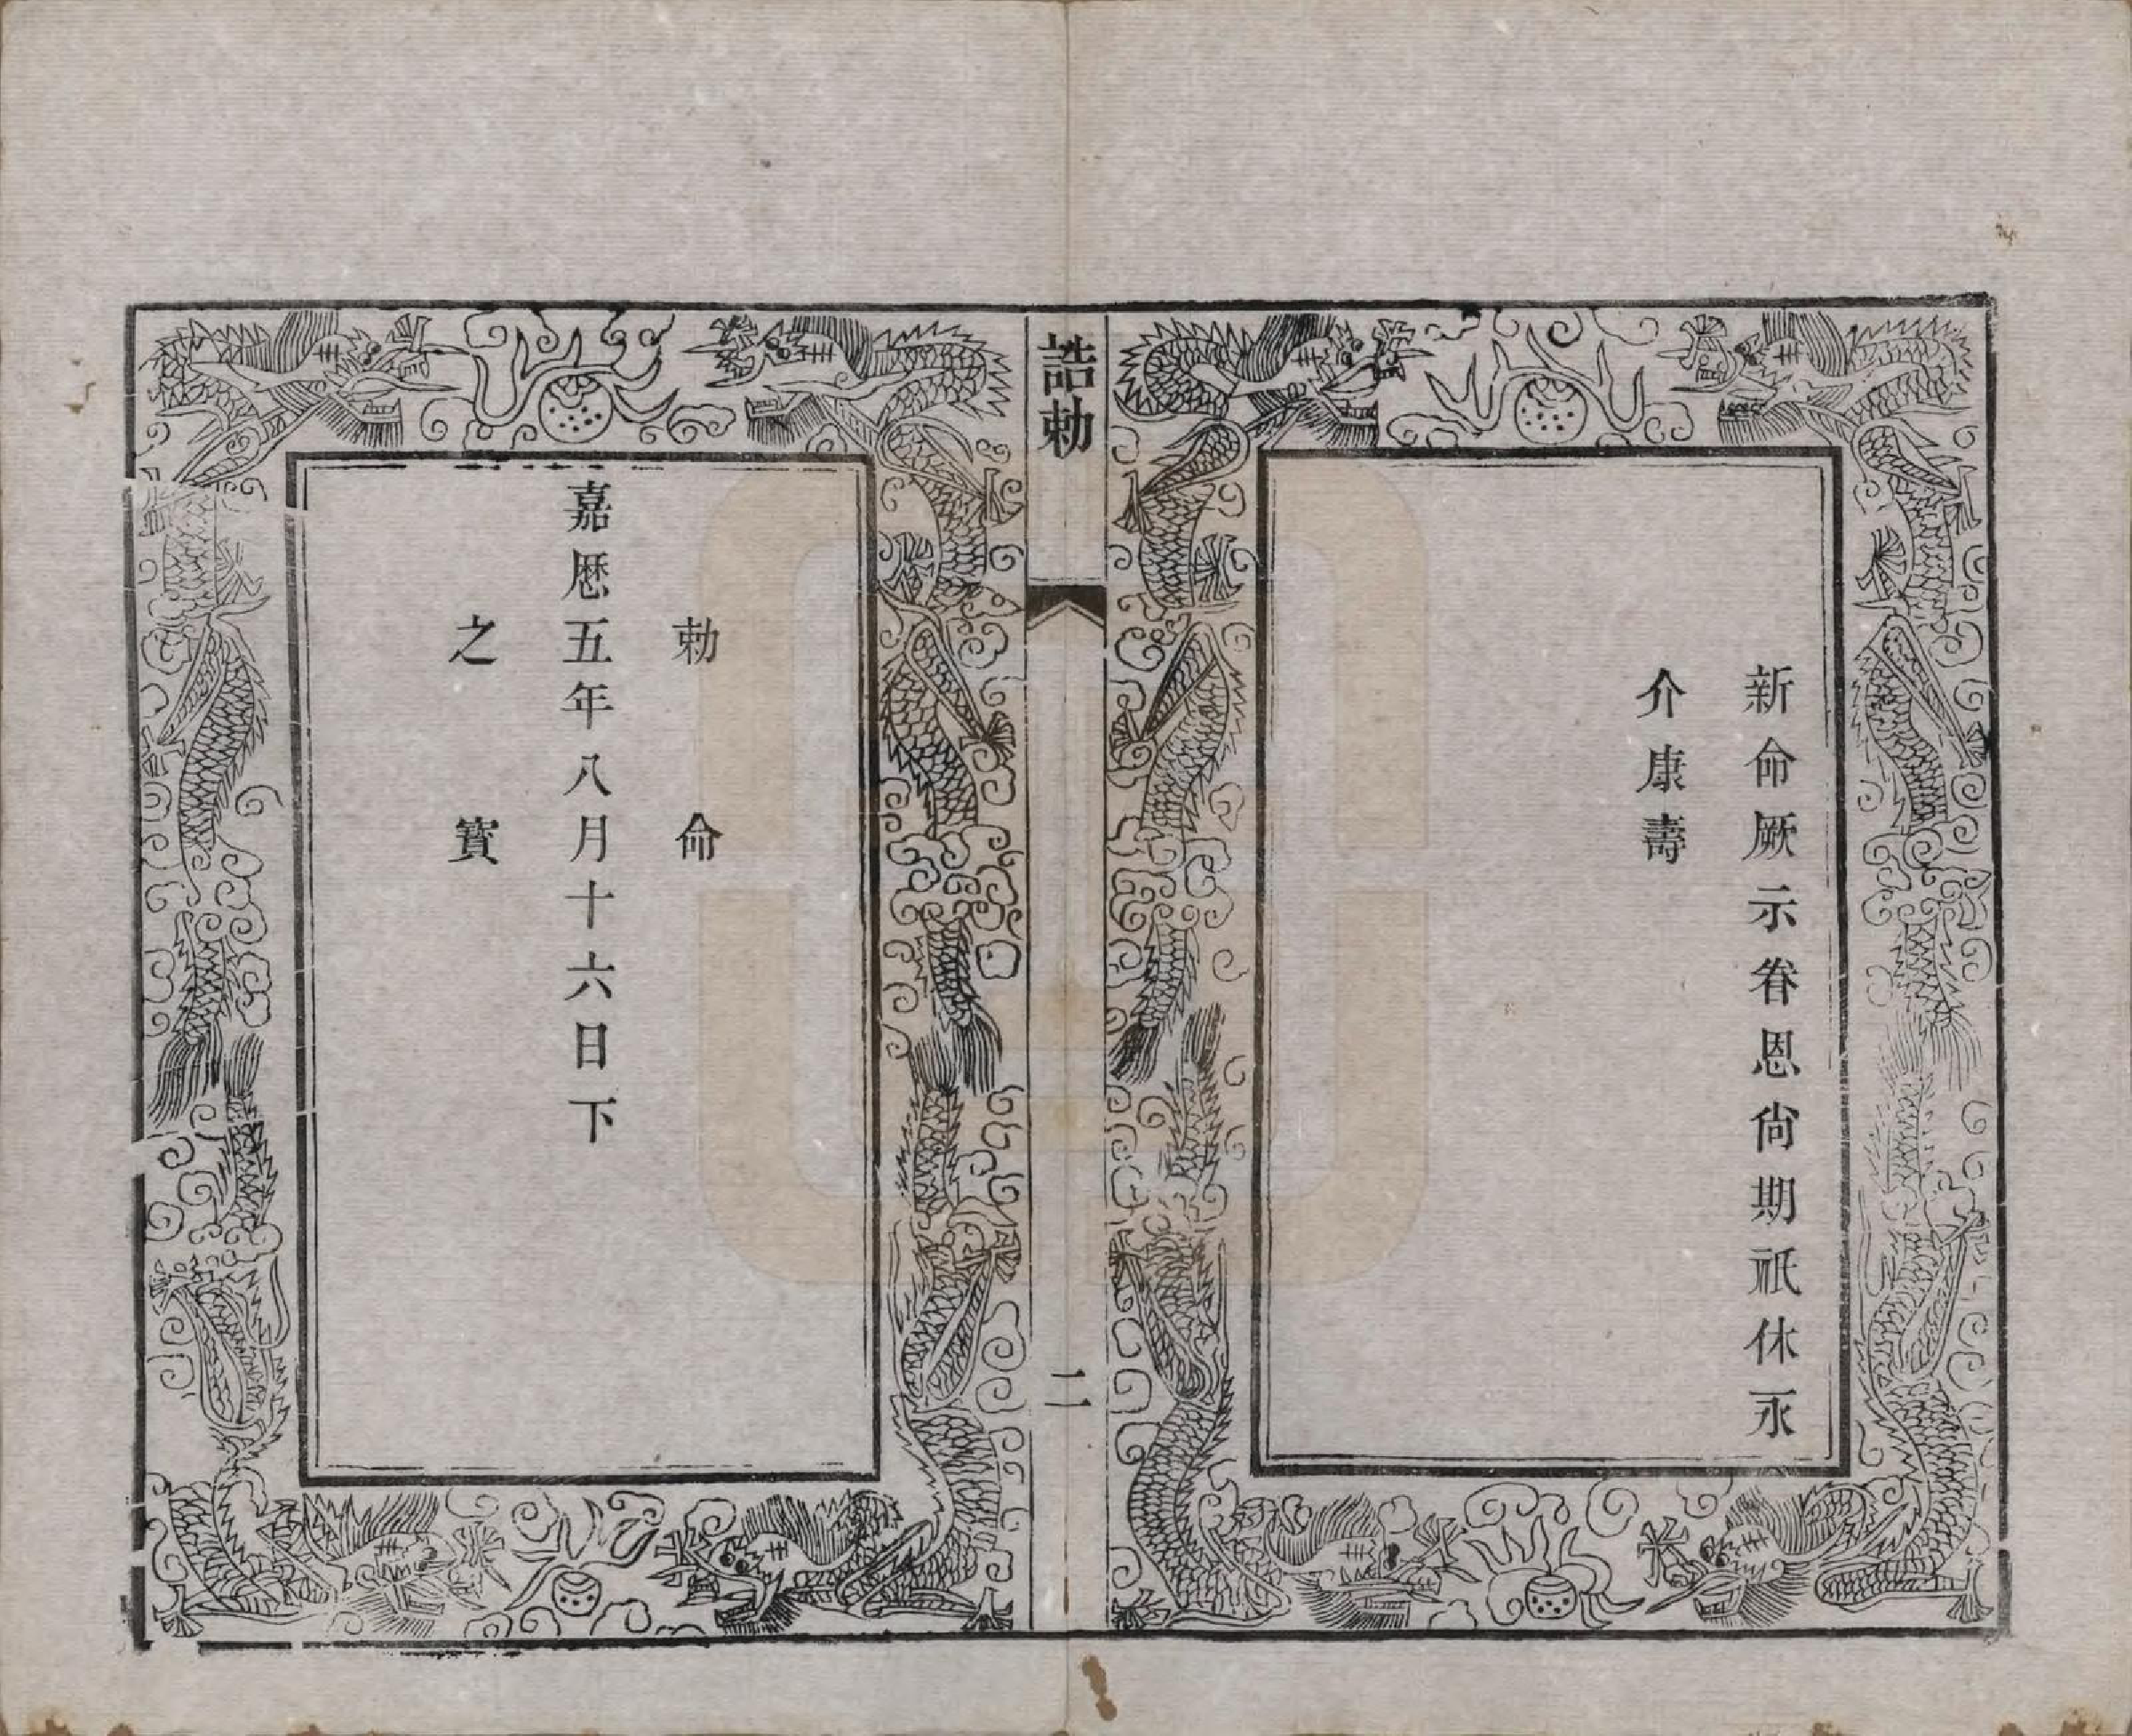 新命厥示眷恩尙期祇休永
介康壽
誥勅
二
勅命
嘉厯五年八月十六日下
之寳